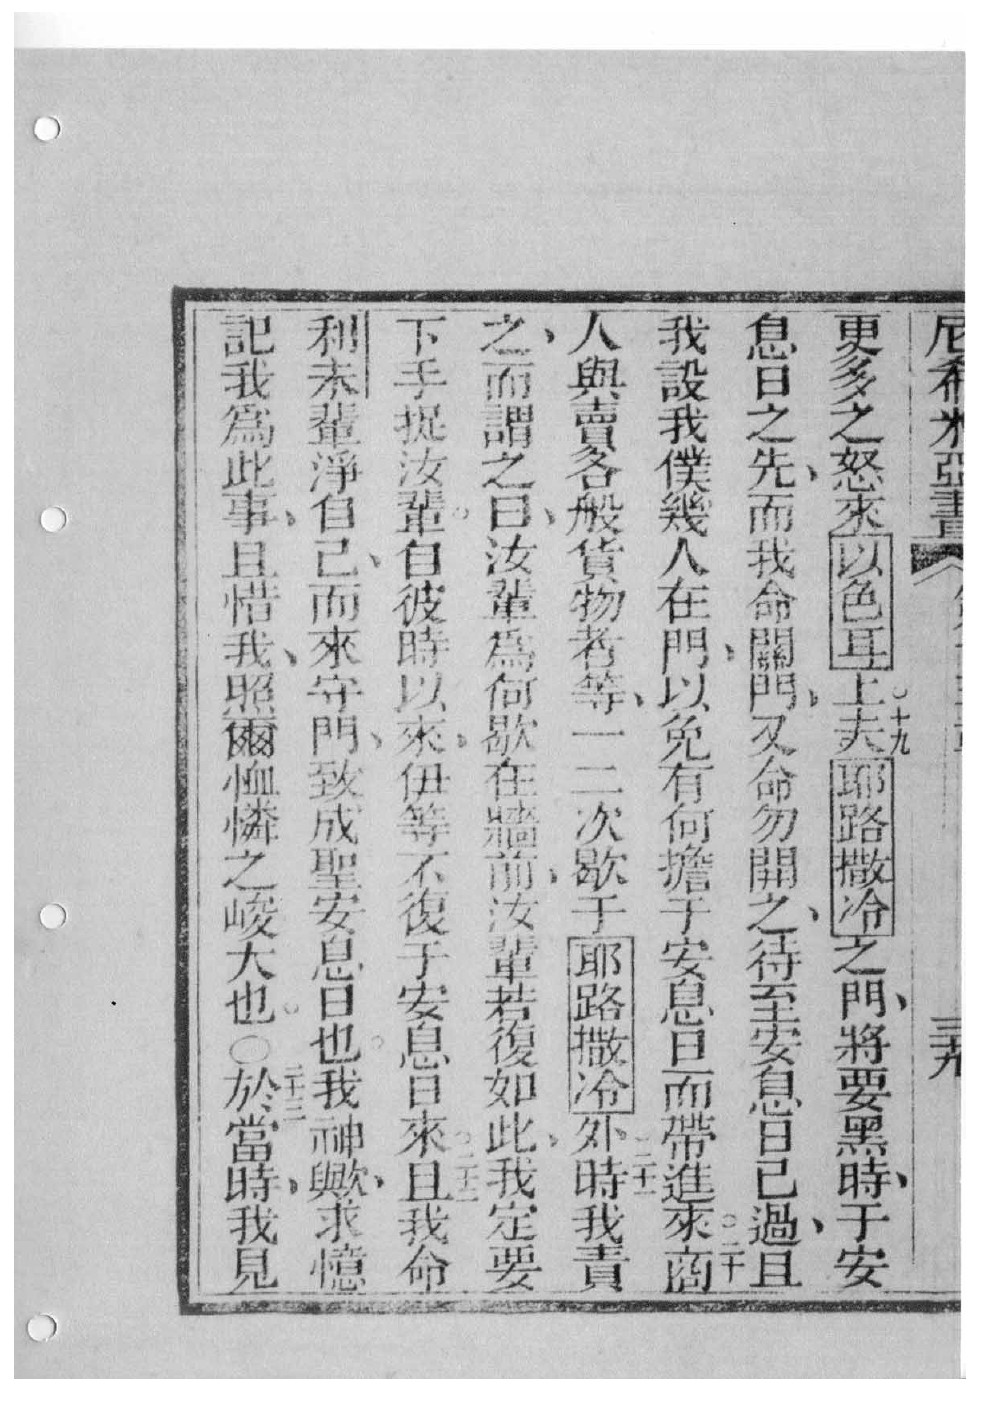 尼希米亞書
三九
更多之怒來以色耳上○十九夫耶路撒冷之門、將要黑時、于安
息日之先、而我命關門、又命勿開之、待至安息日已過、且
我設我僕幾人在門、以免有何擔于安息日而帶進來○二十商
人與賣各般貨物者等、一二次歇于耶路撒冷外○二十一時我責
之、而謂之曰、汝輩為何歇在牆前、汝輩若復如此、我定要
下手捉汝輩。自彼時以來、伊等不復于安息日來○二十二且我命
利未輩淨自己、而來守門、致成聖安息日也。我神歟、求憶
記我為此事、且惜我、照爾恤憐之峻大也。○二十三於當時、我見